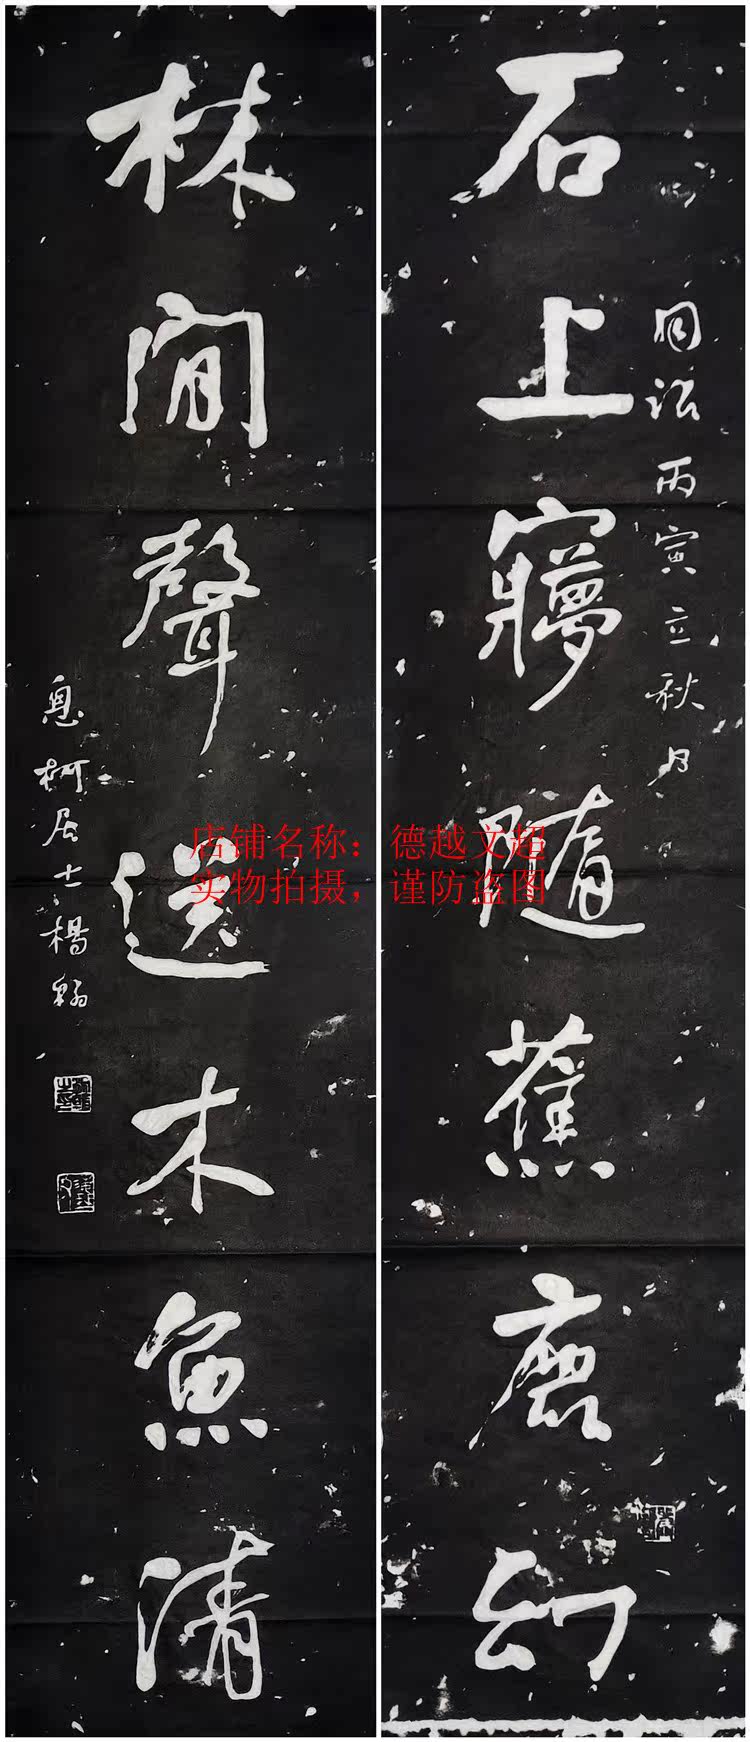 石上寱隨蕉鹿幻
丙寅立秋月
林間聲送木魚清
息柯居士楊翰
店铺名称：德越文超
实物拍摄，谨防盗图